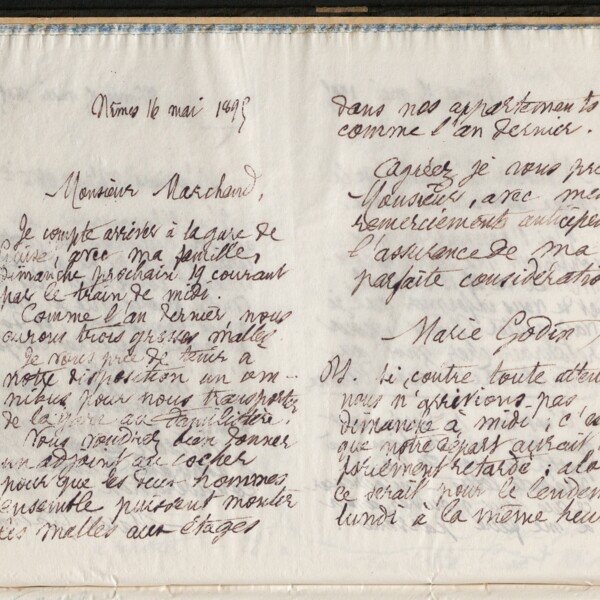 Nîmes 16 mai 1895
Monsieur Marchand,
Je compte arriver à la gare de
Guise, avec ma famille,
dimanche prochain 19 courant
par le train de midi.
Comme l'an dernier, nous
aurons trois grosses malles.
Je vous prie de tenir à
notre disposition un om-
nibus pour nous transporter
de la gare au familistère.
Vous voudrez bien donner
un adjoint au cocher
pour que les deux hommes
ensemble puissent monter
les malles aux étages
dans nos appartements
comme l'an dernier.
Agréez je vous pr
Monsieur, avec me
remerciements anticipé
l'assurance de ma
parfaite considératio
Marie Godin
PS. Si contre toute atten
nous n'arrivions pas
dimanche à midi, c'es
que notre départ aurait
forcément retardé; alo
ce serait pour le lendem
lundi à la même heu